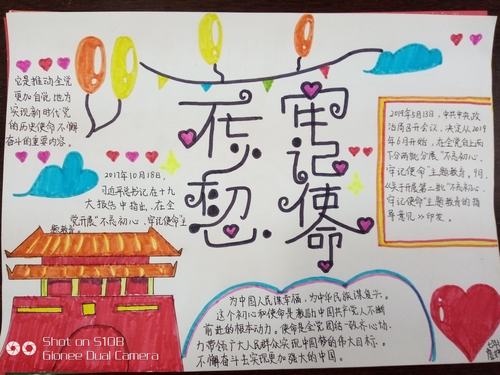 不忘初心
牢记使命
它是推动全党
更加自觉地为
实现新时代党
的历史使命不懈
奋斗的重要内容。
2017年10月18日,
习近平总书记在十九
大报告中指出,在全
党开展"不忘初心,牢记使命"主
题教育。
2019年5月13日,中共中央政
治局召开会议,决定从2019
年6月开始,在全党自上而
下分两批开展"不忘初心、
牢记使命"主题教育。9月,
《关于开展第二批"不忘初心、
牢记使命"主题教育的指
导意见》印发。
为中国人民谋幸福,为中华民族谋复兴。
这个初心和使命是激励中国共产党人不断
前进的根本动力。使命是全党团结一致齐心协
力带领广大人民群众实现中国梦的伟大目标。
不懈奋斗去实现更加强大的中国。
Shot on S10B
Gionee Dual Camera